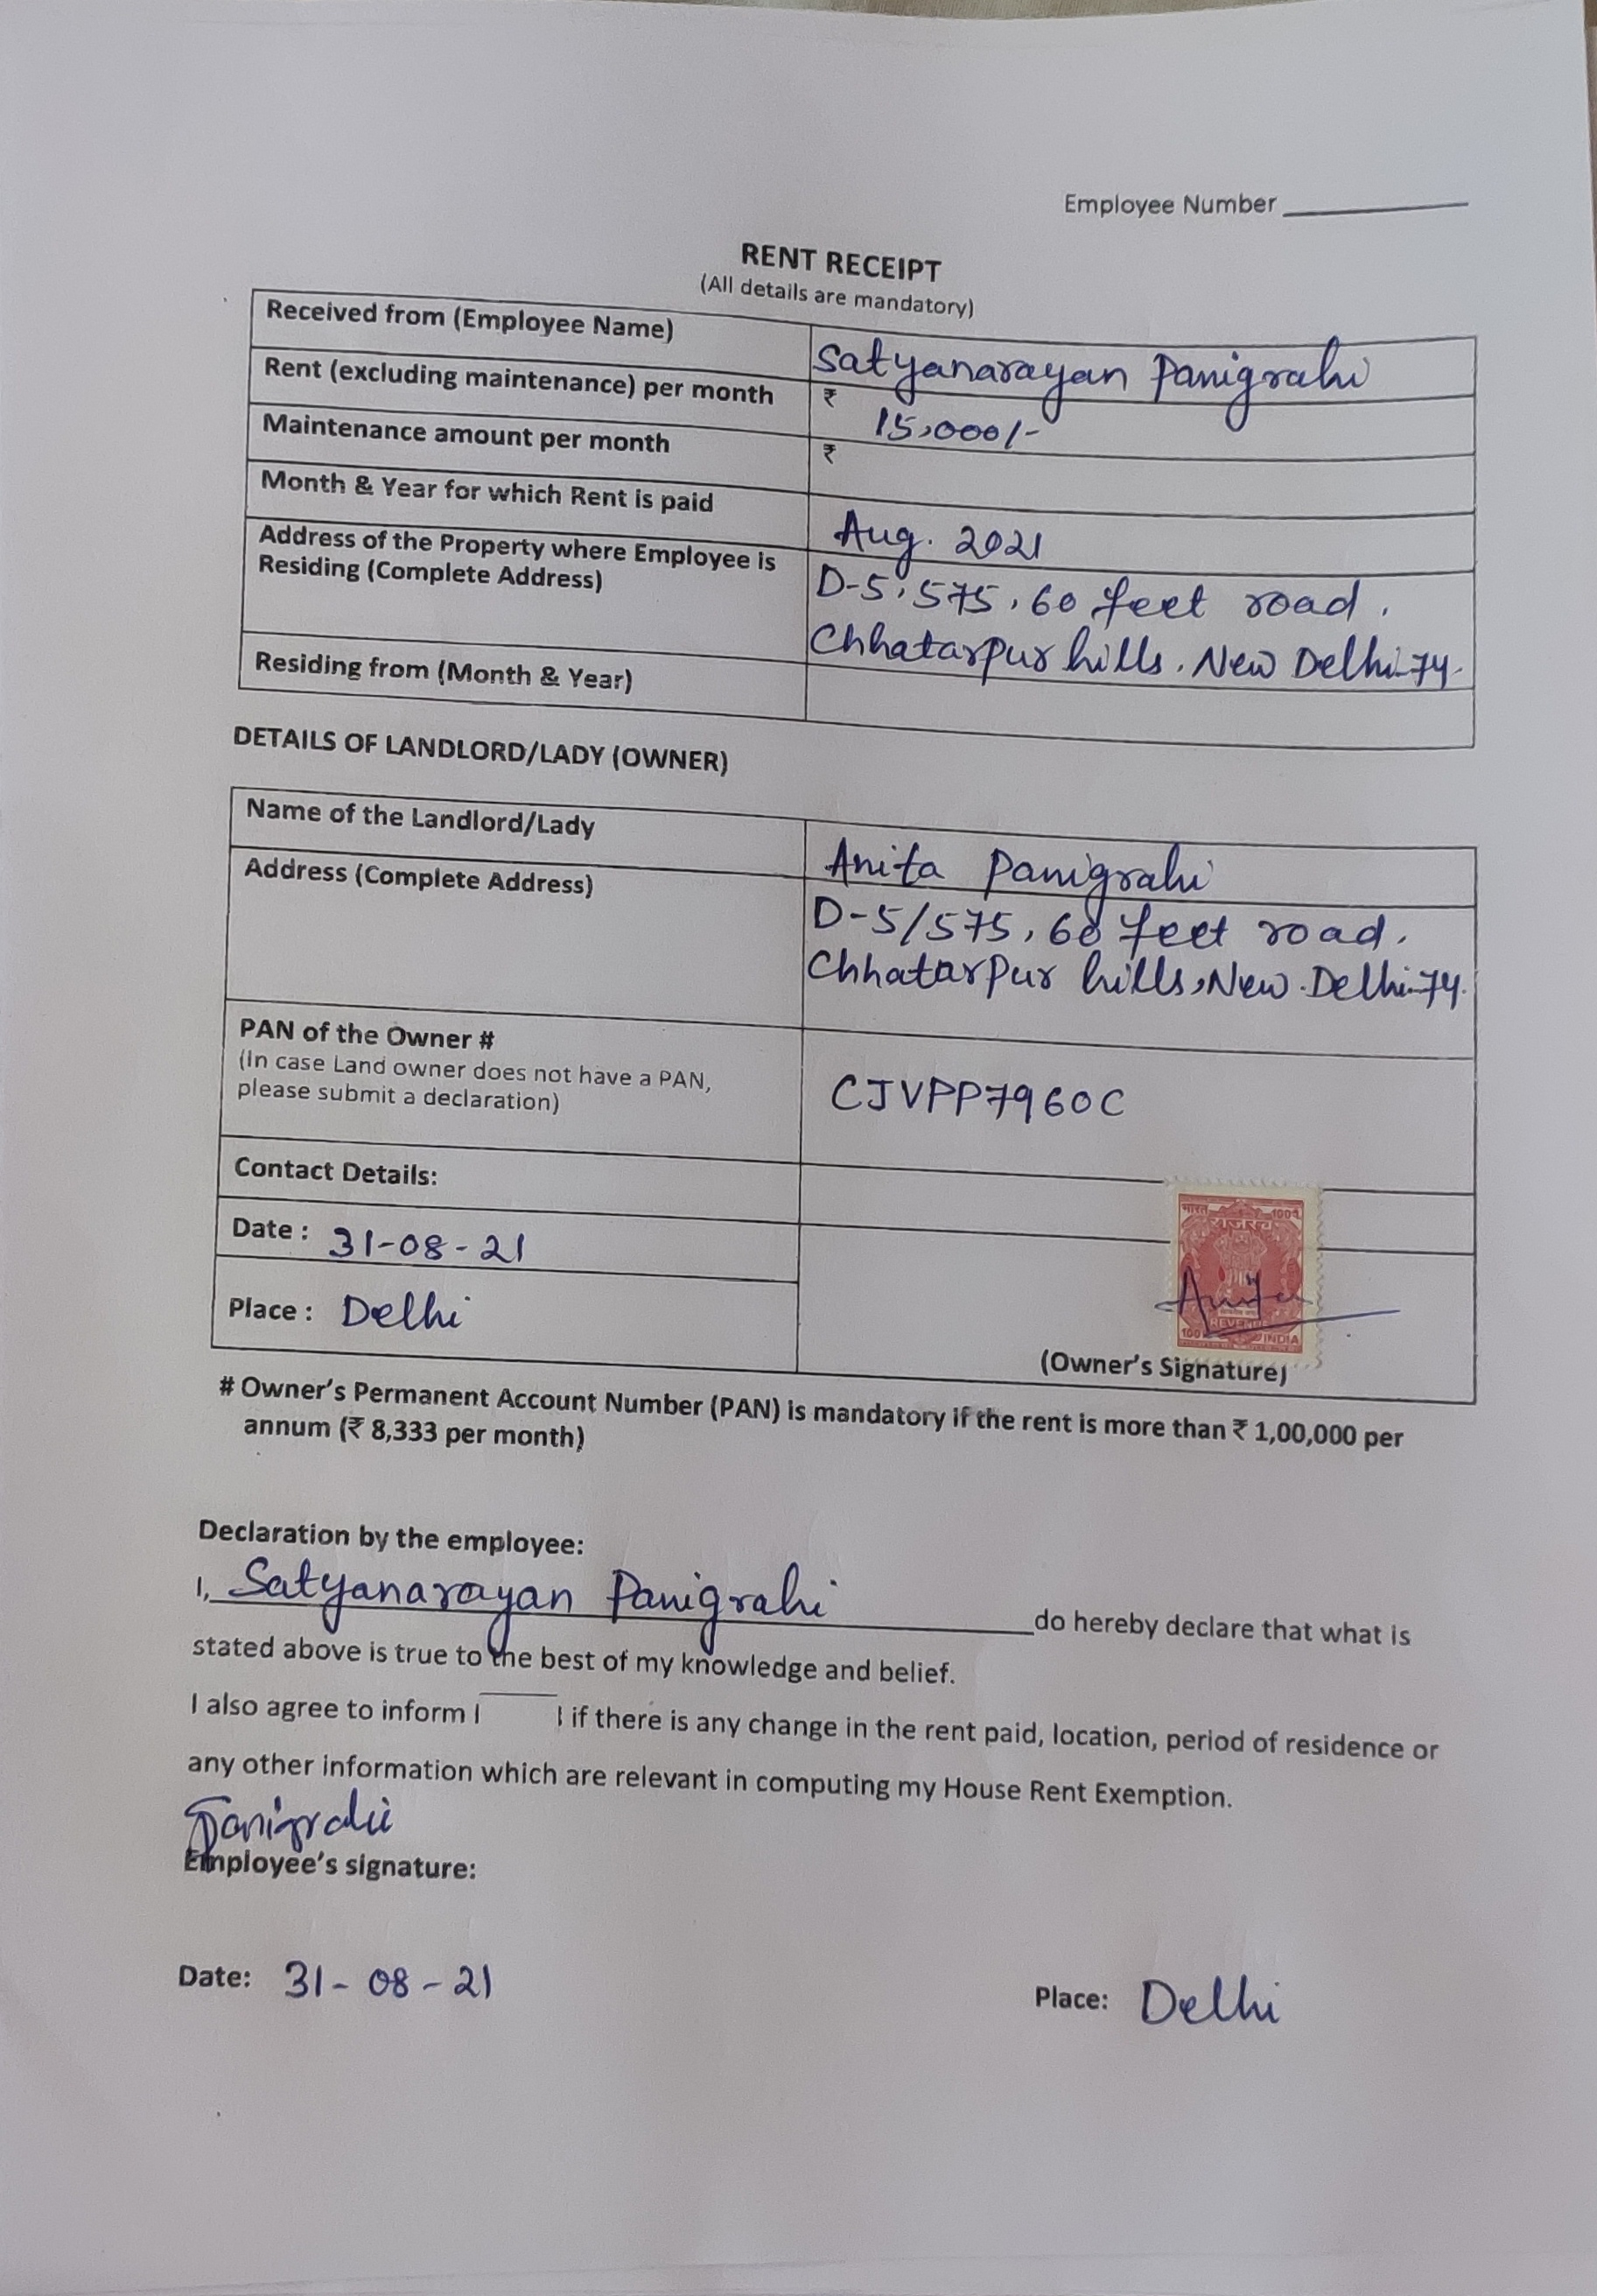 Employee Number
RENT RECEIPT
(All details are mandatory)
Received from (Employee Name) Satyanarayan Panigrahi
Rent (excluding maintenance) per month ₹ 15,000/-
Maintenance amount per month ₹
Month & Year for which Rent is paid Aug. 2021
Address of the Property where Employee is
Residing (Complete Address)
D-5, 575, 60 feet road,
Chhatarpur hills, New Delhi-74.
Residing from (Month & Year)
DETAILS OF LANDLORD/LADY (OWNER)
Name of the Landlord/Lady Anita Panigrahi
Address (Complete Address)
D-5/575, 60 feet road,
Chhatarpur hills, New Delhi-74.
PAN of the Owner #
(In case Land owner does not have a PAN,
please submit a declaration)
CJVPP7960C
Contact Details:
Date : 31-08-21
भारत 100
राजस्व
Anita
REVENUE
100 INDIA
Place : Delhi
(Owner's Signature)
# Owner's Permanent Account Number (PAN) is mandatory if the rent is more than ₹ 1,00,000 per
annum (₹ 8,333 per month)
Declaration by the employee:
I, Satyanarayan Panigrahi do hereby declare that what is
stated above is true to the best of my knowledge and belief.
I also agree to inform if there is any change in the rent paid, location, period of residence or
any other information which are relevant in computing my House Rent Exemption.
Panigrahi
Employee's signature:
Date: 31-08-21 Place: Delhi